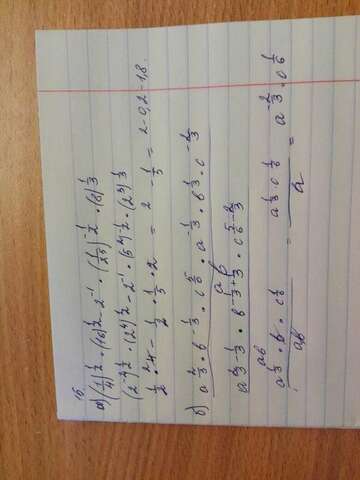 15.
а) (1/4)^{1/2} * (16)^{1/2} - 2^{-1} * (1/25)^{-1/2} * (8)^{1/3}
(2^{-2})^{1/2} * (2^4)^{1/2} - 2^{-1} * (5^{-2})^{-1/2} * (2^3)^{1/3}
1/2 * 4 - 1/2 * 1/5 * 2 = 2 - 1/5 = 2 - 0,2 = 1,8.
б) a^{2/3} * b^{-1/3} * c^{5/6} * a^{-1/3} * b^{1/3} * c^{-2/3}
ab
a^{2/3-1/3} * b^{-1/3+1/3} * c^{5/6-2/3}
ab
a^{1/3} * b * c^{1/6} a^{1/3} * c^{1/6} a^{-2/3} * c^{1/6}
ab = a =